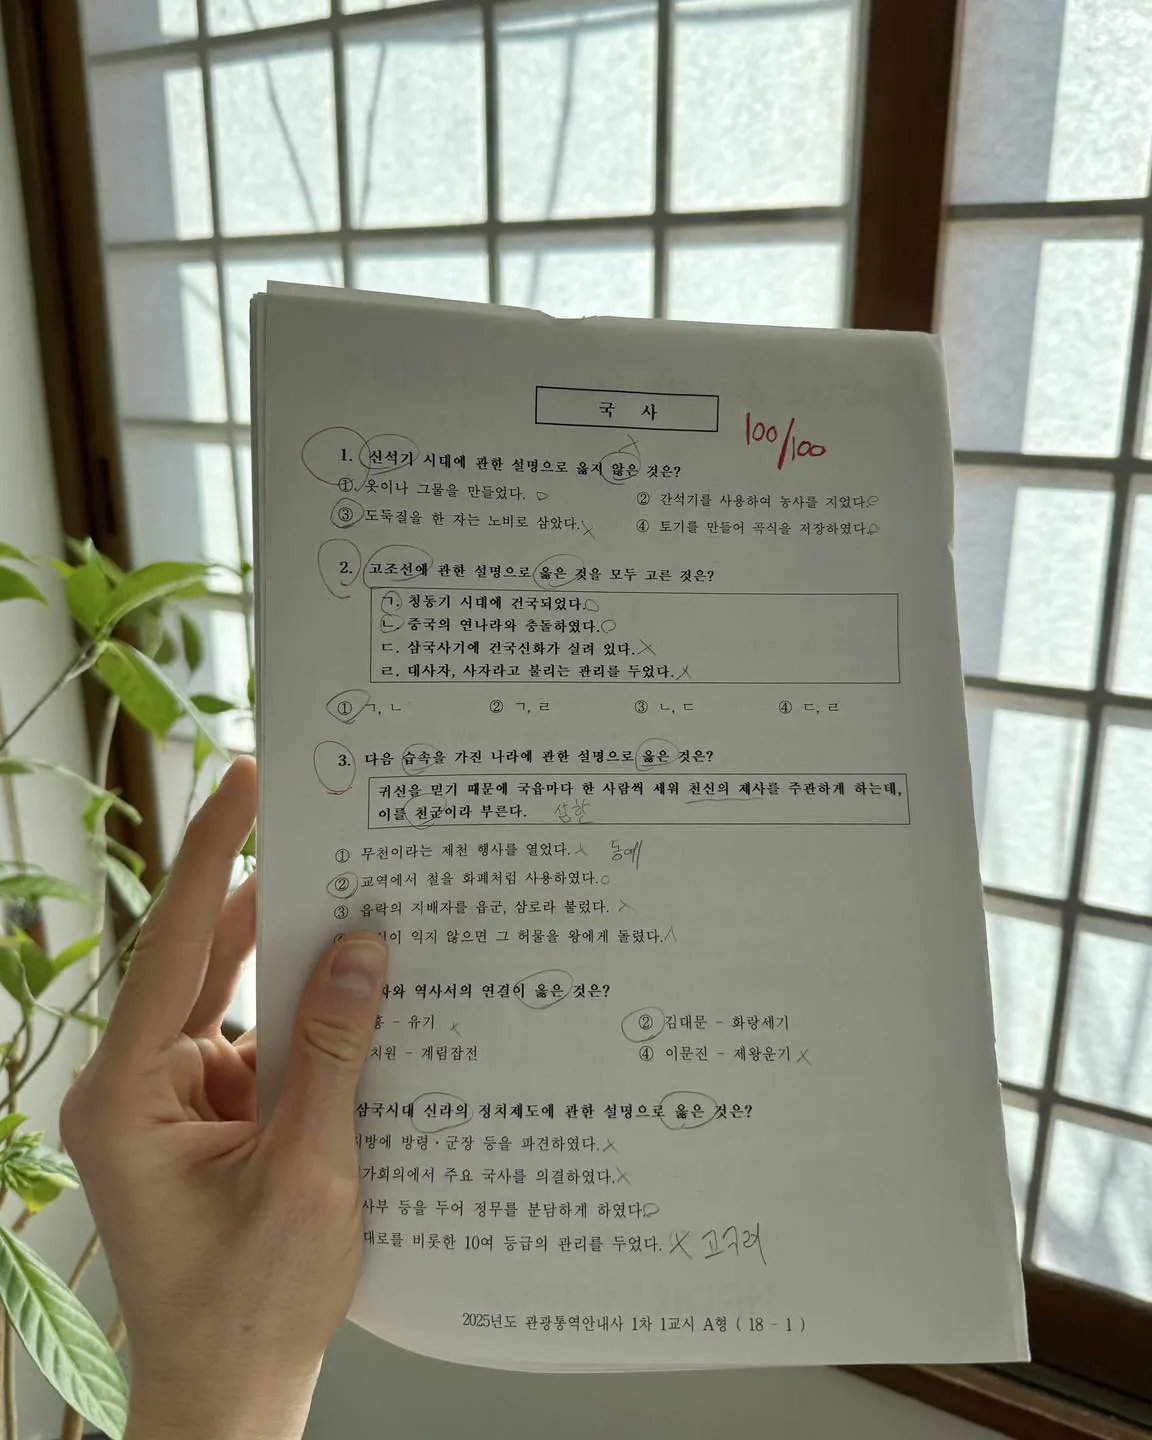 국 사
100/100
1. 신석기 시대에 관한 설명으로 옳지 않은 것은?
① 옷이나 그물을 만들었다.
② 간석기를 사용하여 농사를 지었다.
③ 도둑질을 한 자는 노비로 삼았다.
④ 토기를 만들어 곡식을 저장하였다.
2. 고조선에 관한 설명으로 옳은 것을 모두 고른 것은?
ㄱ. 청동기 시대에 건국되었다.
ㄴ. 중국의 연나라와 충돌하였다.
ㄷ. 삼국사기에 건국신화가 실려 있다.
ㄹ. 대사자, 사자라고 불리는 관리를 두었다.
① ㄱ, ㄴ ② ㄱ, ㄹ ③ ㄴ, ㄷ ④ ㄷ, ㄹ
3. 다음 습속을 가진 나라에 관한 설명으로 옳은 것은?
귀신을 믿기 때문에 국읍마다 한 사람씩 세워 천신의 제사를 주관하게 하는데,
이를 천군이라 부른다. 삼한
① 무천이라는 제천 행사를 열었다. 동예
② 교역에서 철을 화폐처럼 사용하였다.
③ 읍락의 지배자를 읍군, 삼로라 불렀다.
익지 않으면 그 허물을 왕에게 돌렸다.
역사서의 연결이 옳은 것은?
- 유기
② 김대문 - 화랑세기
치원 - 계림잡전
④ 이문진 - 제왕운기
삼국시대 신라의 정치제도에 관한 설명으로 옳은 것은?
방령·군장 등을 파견하였다.
가회의에서 주요 국사를 의결하였다.
사부 등을 두어 정무를 분담하게 하였다.
대로를 비롯한 10여 등급의 관리를 두었다. 고구려
2025년도 관광통역안내사 1차 1교시 A형 ( 18 - 1 )